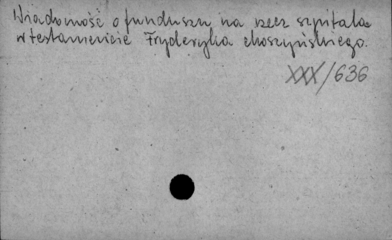 Wiadomość o funduszu na rzecz szpitala
w testamencie Fryderyka choszyńskiego.
XXX/636